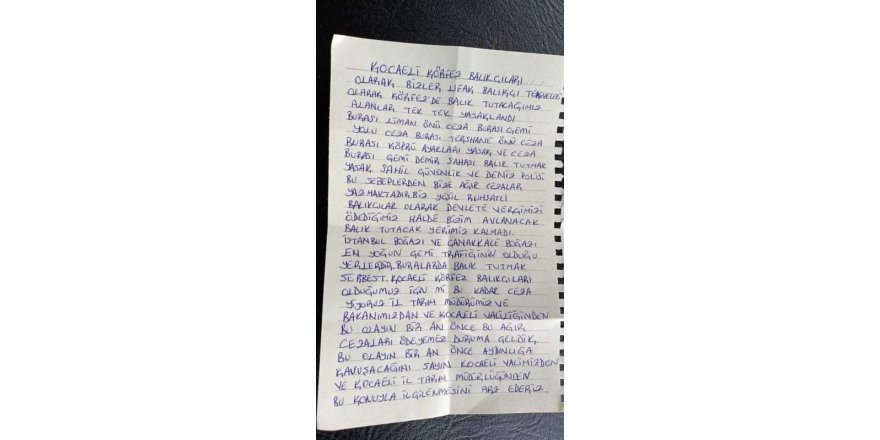 KOCAELİ KÖRFEZ BALIKCILARI
OLARAK BİZLER UFAK BALIKÇI TEKNELERİ
OLARAK KÖRFEZ'DE BALIK TUTACAĞIMIZ
ALANLAR TEK TEK YASAKLANDI
BURASI LİMAN ÖNÜ CEZA BURASI GEMİ
YOLU CEZA BURASI TERSHANE ÖNÜ CEZA
BURASI KÖPRÜ AYAKLARI YASAK VE CEZA
BURASI GEMİ DEMİR SAHASI BALIK TUTMAK
YASAK SAHİL GÜVENLİK VE DENİZ POLİSİ
BU SEBEPLERDEN BİZE AĞIR CEZALAR
YAZMAKTADIR. BİZ YEŞİL RUHSATLI
BALIKCILAR OLARAK DEVLETE VERGİMİZİ
ÖDEDİĞİMİZ HALDE BİZİM AVLANACAK
BALIK TUTACAK YERİMİZ KALMADI.
İSTANBUL BOĞAZI VE ÇANAKKALE BOĞAZI
EN YOĞUN GEMİ TRAFİĞİNİN OLDUĞU
YERLERDİR. BURALARDA BALIK TUTMAK
SERBEST. KOCAELİ KÖRFEZ BALIKCILARI
OLDUĞUMUZ İÇİN Mİ BU KADAR CEZA
YİYORUZ. İL TARIM MÜDÜRÜMÜZ VE
BAKANIMIZDAN VE KOCAELİ VALİLİĞİNDEN
BU OLAYIN BİR AN ÖNCE BU AĞIR
CEZALARI ÖDEYEMEZ DURUMA GELDİK.
BU OLAYIN BİR AN ÖNCE AYDINLIĞA
KAVUŞACAĞINI SAYIN KOCAELİ VALİMİZDEN
VE KOCAELİ İL TARIM MÜDÜRLÜĞÜNDEN
BU KONUYLA İLGİLENMESİNİ ARZ EDERİZ.